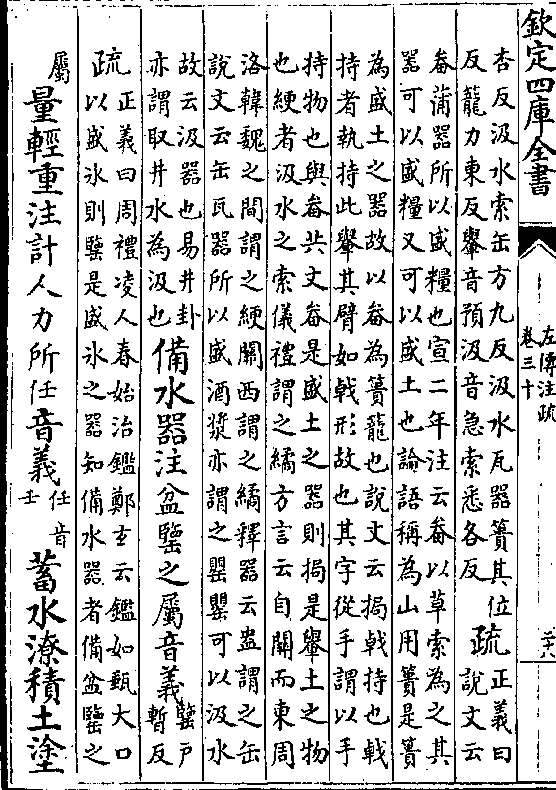 欽定四庫全書
左傳注疏
卷三十
杏反汲水索缶方九反汲水瓦器蕢其位
反籠力東反轝音預汲音急索悉各反
疏
正義曰
說文云
畚蒲器所以盛糧也宣二年注云畚以草索為之其
器可以盛糧又可以盛土也論語稱為山用蕢是蕢
為盛土之器故以畚為蕢籠也說文云挶戟持也戟
持者執持此轝其臂如戟形故也其字從手謂以手
持物也與畚共文畚是盛土之器則挶是轝土之物
也綆者汲水之索儀禮謂之繘方言云自關而東周
洛韓魏之間謂之綆關西謂之繘釋器云盎謂之缶
說文云缶瓦器所以盛酒漿亦謂之罌罌可以汲水
故云汲器也易井卦
亦謂取井水為汲也
備水器注盆鑒之屬音義
鑒户
暫反
疏
正義曰周禮凌人春始治鑑鄭𤣥云鑑如甄大口
以盛氷則鑒是盛氷之器知備水器者備盆鑒之
屬
量輕重注計人力所任音義
任音
壬
蓄水潦積土塗